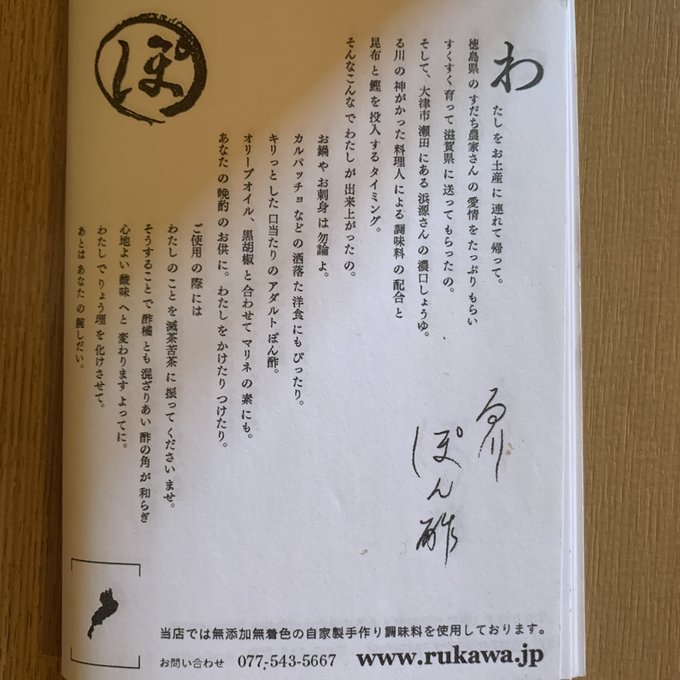 わたしをお土産に連れて帰って。
徳島県のすだち農家さんの愛情をたっぷりもらい
すくすく育って滋賀県に送ってもらったの。
そして、大津市瀬田にある浜源さんの濃口しょうゆ。
る川の神がかった料理人による調味料の配合と
昆布と鰹を投入するタイミング。
そんなこんなでわたしが出来上がったの。
お鍋やお刺身は勿論よ。
カルパッチョなどの洒落た洋食にもぴったり。
キリっとした口当たりのアダルトぽん酢。
オリーブオイル、黒胡椒と合わせてマリネの素にも。
あなたの晩酌のお供に。わたしをかけたりつけたり。
ご使用の際には
わたしのことを滅茶苦茶に振ってくださいませ。
そうすることで酢橘とも混ざりあい酢の角が和らぎ
心地よい酸味へと変わりますよってに。
わたしでりょう理を化けさせて。
あとはあなたの腕しだい。
る川
ぽん酢
ぽ
当店では無添加無着色の自家製手作り調味料を使用しております。
お問い合わせ 077-543-5667 www.rukawa.jp